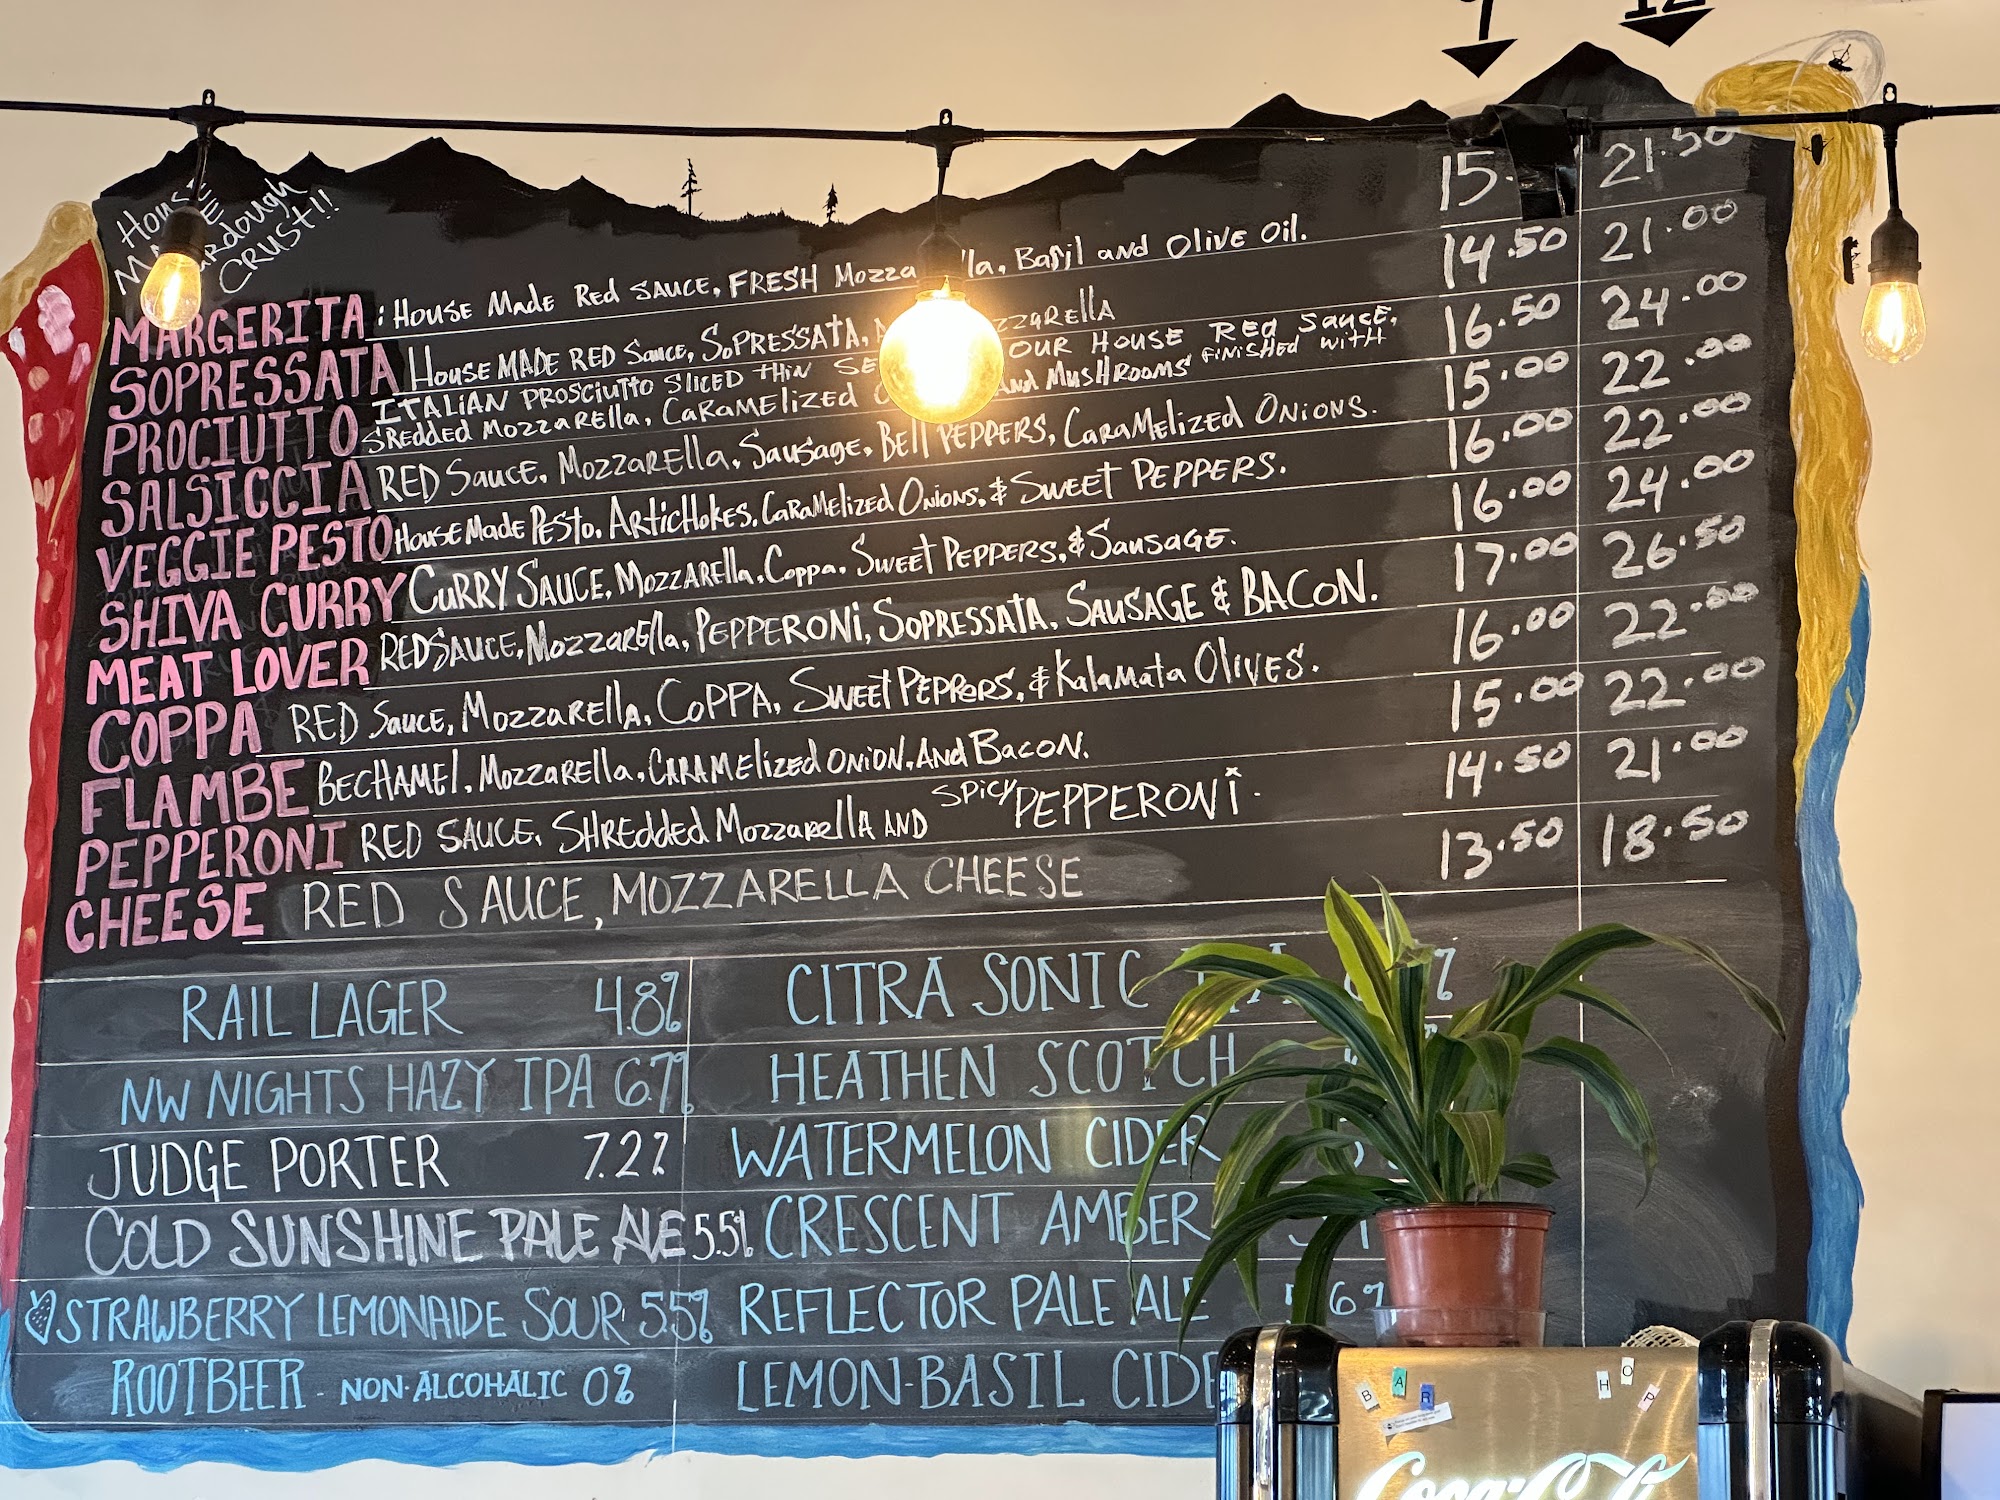 12
HOUSE
SOURDOUGH
CRUST!!
15. 21.50
MARGERITA : HOUSE Made Red SAUCE, FRESH Mozza lla, Basil and Olive Oil. 14.50 21.00
SOPRESSATA HOUSE MADE RED Sauce, SOPRESSATA, MOZZARELLA 16.50 24.00
PROCIUTTO ITALIAN PROSCIUTTO SLICED THIN OUR HOUSE RED Sauce,
SREDDED MOZZARELLA, CARAMELIZED AND MUSHROOMS FINISHED WITH 15.00 22.00
SALSICCIA RED Sauce, Mozzarella, Sausage, Bell PEPPERS, CARAMELIZED ONIONS. 16.00 22.00
VEGGIE PESTO House Made Pesto, ARTICHOKES, CARAMELIZED ONIONS, & SWEET PEPPERS. 16.00 24.00
SHIVA CURRY CURRY SAUCE, MOZZARElla, Coppa, SWEET PEPPERS, & SAUSAGE. 17.00 26.50
MEAT LOVER RED SAUCE, MozzaRElla, PEPPERONI, SOPRESSATA, SAUSAGE & BACON. 16.00 22.00
COPPA RED SAUCE, MOZZARELLA, COPPA, SWEET PEPPERS, & Kalamata OLIVES. 15.00 22.00
FLAMBE BECHAMEL, Mozzarella, CARAMELIZED ONION, And BACON. 14.50 21.00
PEPPERONI RED SAUCE, SHREdded Mozzarella AND SPICY PEPPERONI. 13.50 18.50
CHEESE RED SAUCE, MOZZARELLA CHEESE
RAIL LAGER 4.8%
CITRA SONIC
NW NIGHTS HAZY IPA 6.7%
HEATHEN SCOTCH
JUDGE PORTER 7.2%
WATERMELON CIDER
COLD SUNSHINE PALE ALE 5.5%
CRESCENT AMBER
STRAWBERRY LEMONAIDE SOUR 5.5%
REFLECTOR PALE ALE
ROOTBEER - NON-ALCOHALIC 0%
LEMON-BASIL CIDE
BAR
HOP
Coca-Cola